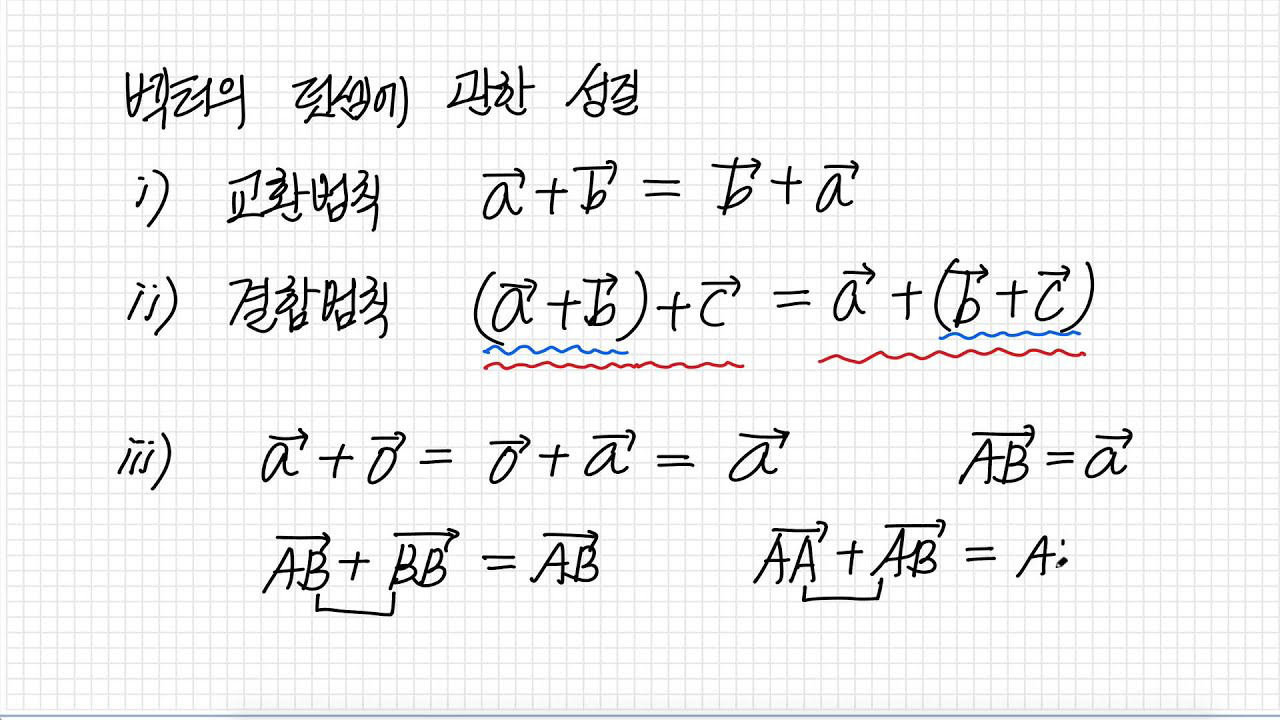 벡터의 덧셈에 관한 성질
i) 교환법칙 a⃗ + b⃗ = b⃗ + a⃗
ii) 결합법칙 (a⃗ + b⃗) + c⃗ = a⃗ + (b⃗ + c⃗)
iii) a⃗ + o⃗ = o⃗ + a⃗ = a⃗ AB⃗ = a⃗
AB⃗ + BB⃗ = AB⃗ AA⃗ + AB⃗ = A